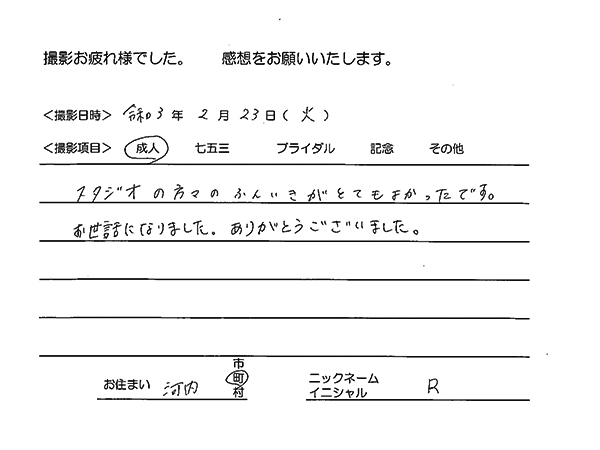 撮影お疲れ様でした。 感想をお願いいたします。
<撮影日時> 令和3年 2月 23日(火)
<撮影項目> 成人 七五三 ブライダル 記念 その他
スタジオの方々のふんいきがとてもよかったです。
お世話になりました。ありがとうございました。
お住まい 河内 市町村 ニックネーム イニシャル R